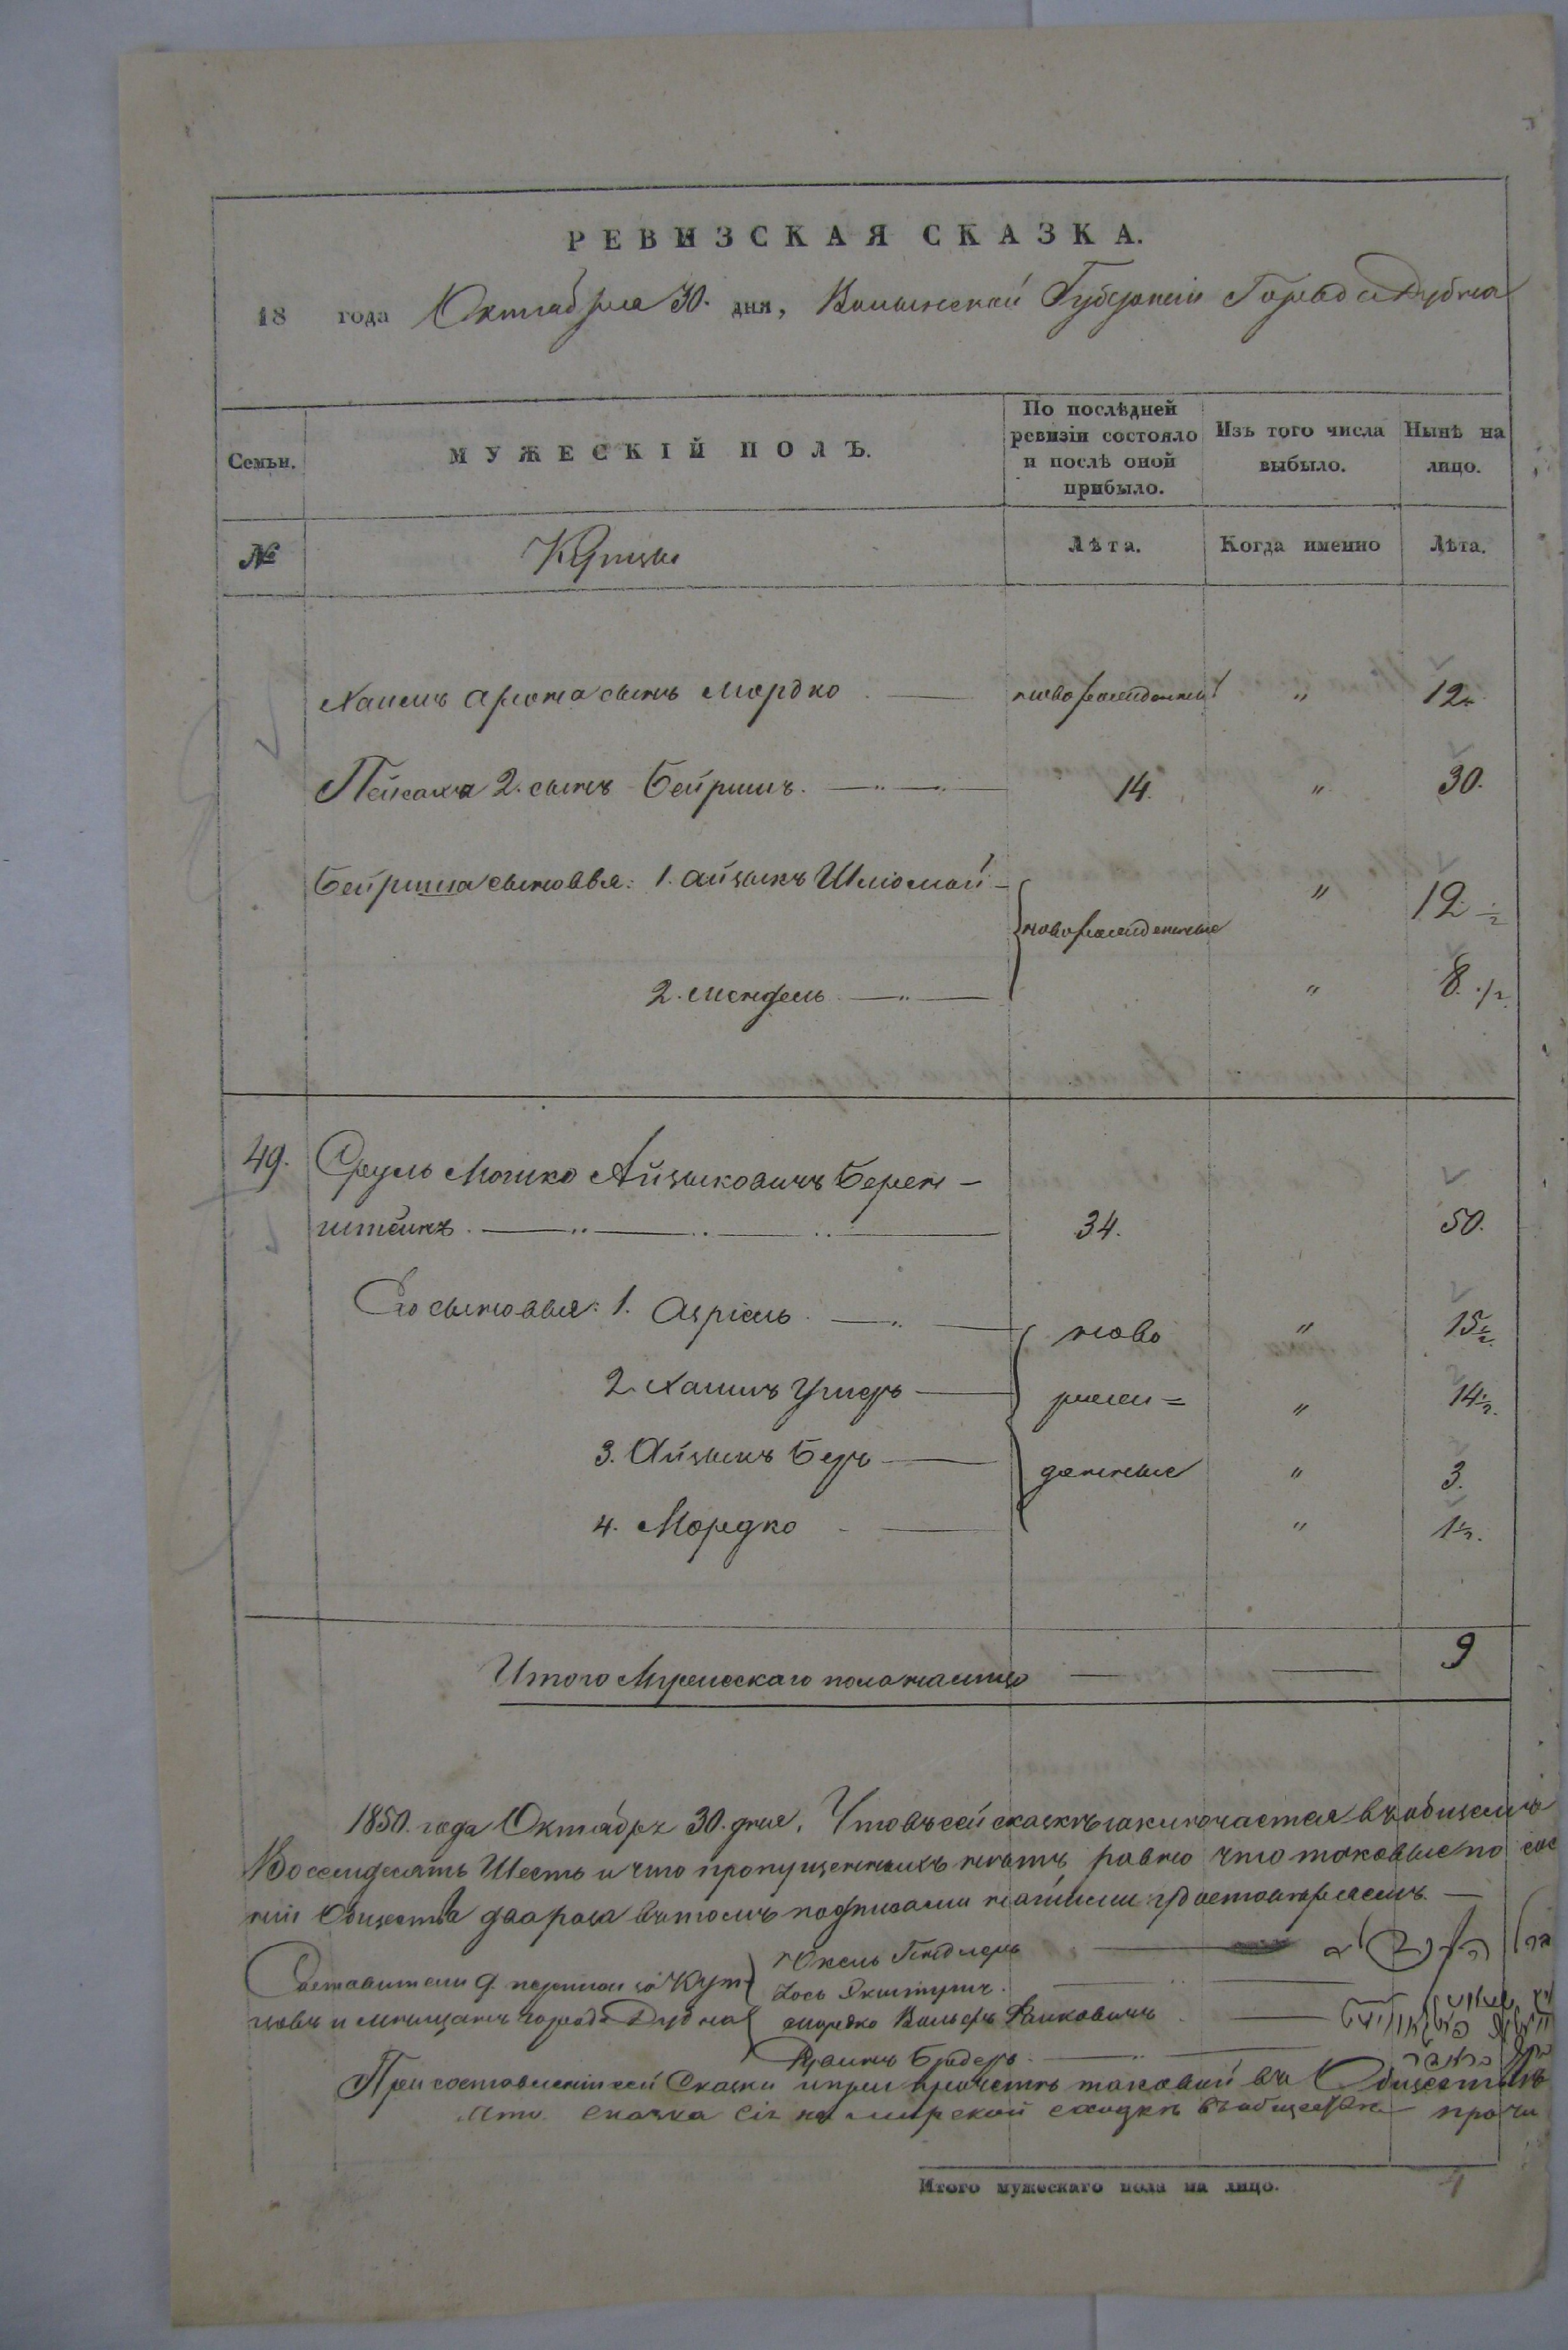 РЕВИЗСКАЯ СКАЗКА.
18 года Октября 30. дня, Волынской Губерніи Города Дубна
Семьи. МУЖЕСКІЙ ПОЛЪ. По послѣдней ревизіи состояло и послѣ оной прибыло. Изъ того числа выбыло. Нынѣ на лицо.
№ Купцы Лѣта. Когда именно Лѣта.
Хаимъ Арона сынъ Мордко новорожденный " 12
Пейсаха 2. сынъ Бейришъ. 14. " 30.
Бейриша сыновья: 1. Айзыкъ Шлиомой " 12 ½
новорожденные
2. Мендель " 8. ½
49. Сруль Мошко Айзыковичъ Берен-
штейнъ. 34. 50.
Его сыновья: 1. Азріель ново " 15½
2. Хаимъ Ушеръ рож- " 14½.
3. Айзыкъ Беръ денные " 3.
4. Мордко " 1½.
Итого Мужескаго пола налицо 9
1850. года Октября 30. дня. Что въ сей сказкѣ заключается въ общемъ
Восемдесятъ Шесть и что пропущенныхъ нѣтъ равно что таковые по
Общества два раза въ томъ подписами нашими удостовѣряемъ.
Составители купцовъ и мѣщанъ города Дубна
Мордко Вольфъ
При составленіи сей Сказки и при прочетѣ таковой въ Обществѣ
Сказка сія на мирской сходкѣ въ обществѣ прочи
Итого мужескаго пола на лицо.